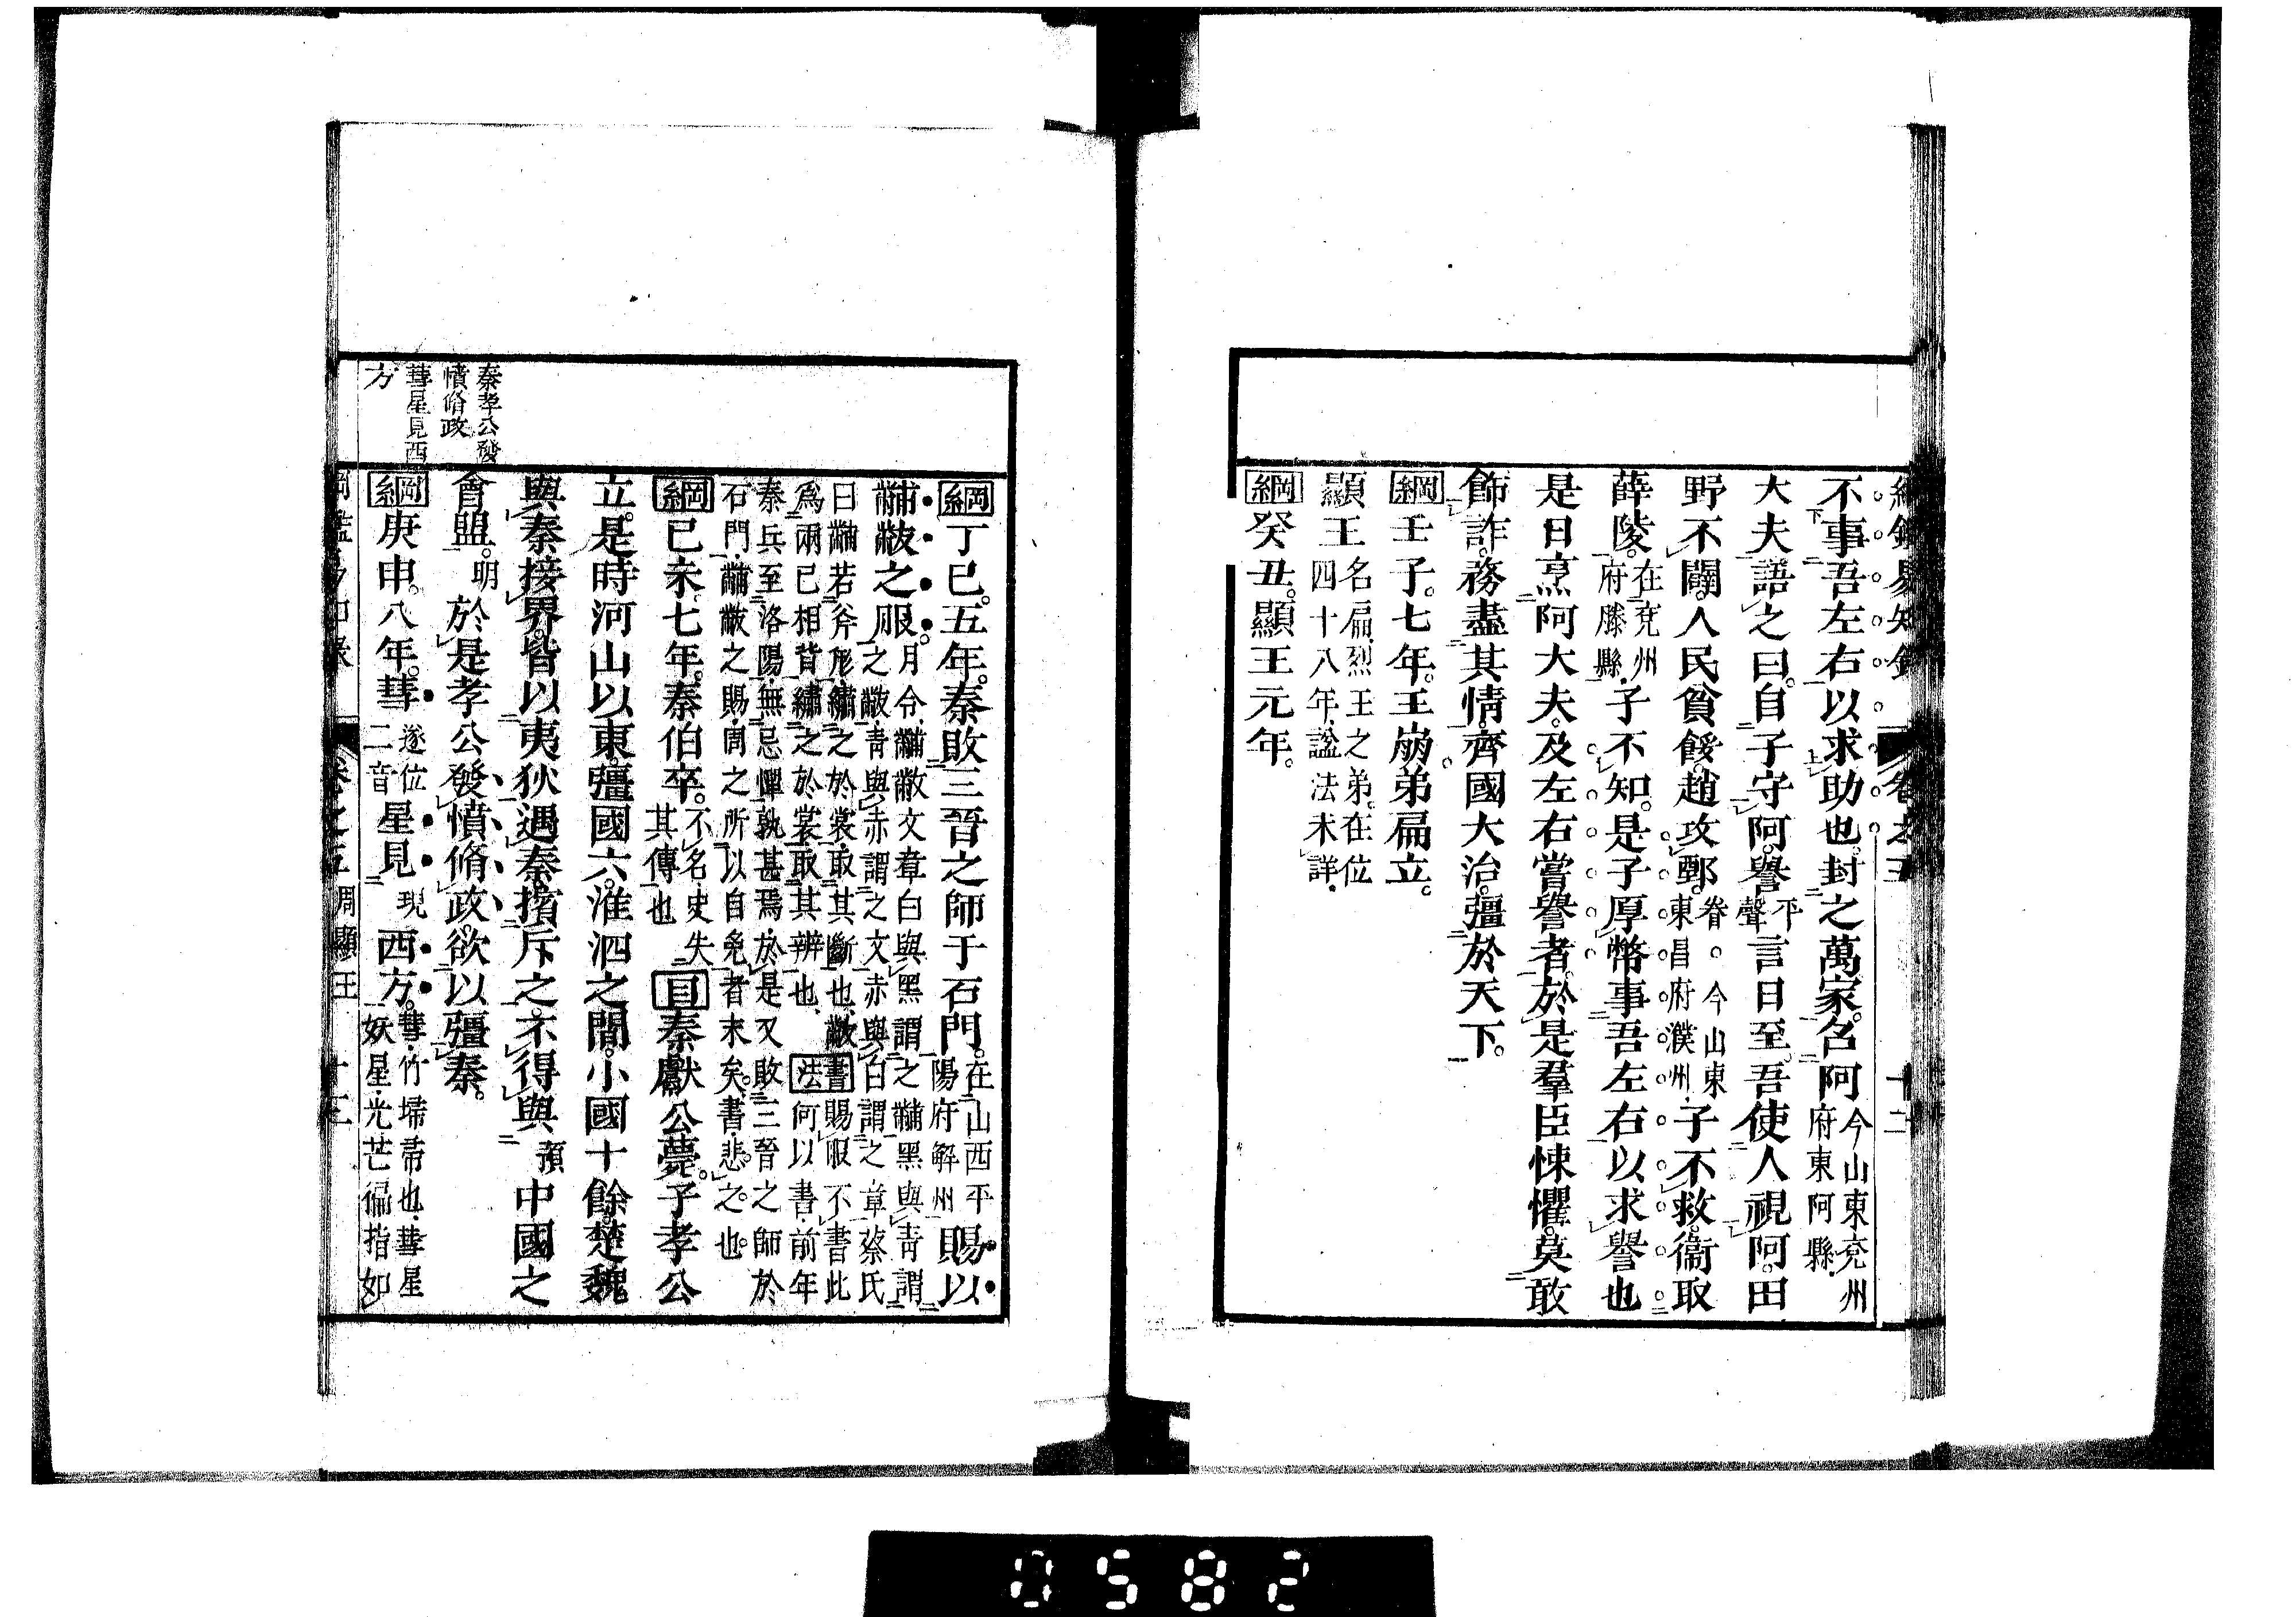 綱鑑易知錄 卷之五 十二
不事吾左右以求助也。封之萬家。名阿今山東兗州府東阿縣.
大夫。語之曰。自子守阿。譽平聲言日至。吾使人視阿。田
野不闢。人民貧餒。趙攻鄄。眷。今山東東昌府濮州.子不救。衞取
薛陵。在兗州府滕縣.子不知。是子厚幣事吾左右以求譽也
是日烹阿大夫。及左右嘗譽者。於是羣臣悚懼。莫敢
飾詐。務盡其情。齊國大治。彊於天下。
綱壬子。七年。王崩。弟扁立。
顯王名扁.烈王之弟。在位四十八年.諡法未詳.
綱癸丑。顯王元年。
綱丁巳。五年。秦敗三晉之師于石門。在山西平陽府解州賜以
黼黻之服。月令.黼黻文章白與黑謂之黼黑與青謂之黻.青與赤謂之文赤與白謂之章蔡氏
曰黼若斧形.繡之於裳.取其斷也.黻爲兩己相背.繡之於裳取其辨也.書法賜服不書此何以書.前年
秦兵至洛陽.無忌憚孰甚焉.於是又敗三晉之師於石門.黼黻之賜.周之所以自免者末矣。書.悲之也。
綱己未。七年。秦伯卒。不名.史失其傳也目秦獻公薨。子孝公
立。是時河山以東。彊國六。淮泗之閒。小國十餘。楚魏
與秦接界。皆以夷狄遇秦。擯斥之。不得與預中國之
會盟。明於是孝公發憤脩政。欲以彊秦。
綱庚申。八年。彗遂位二音星見現西方。彗.竹埽帚也.彗星妖星.光芒偏指如
秦孝公發
憤脩政
彗星見西
方
綱鑑易知錄 卷之五 周顯王 十三
0582